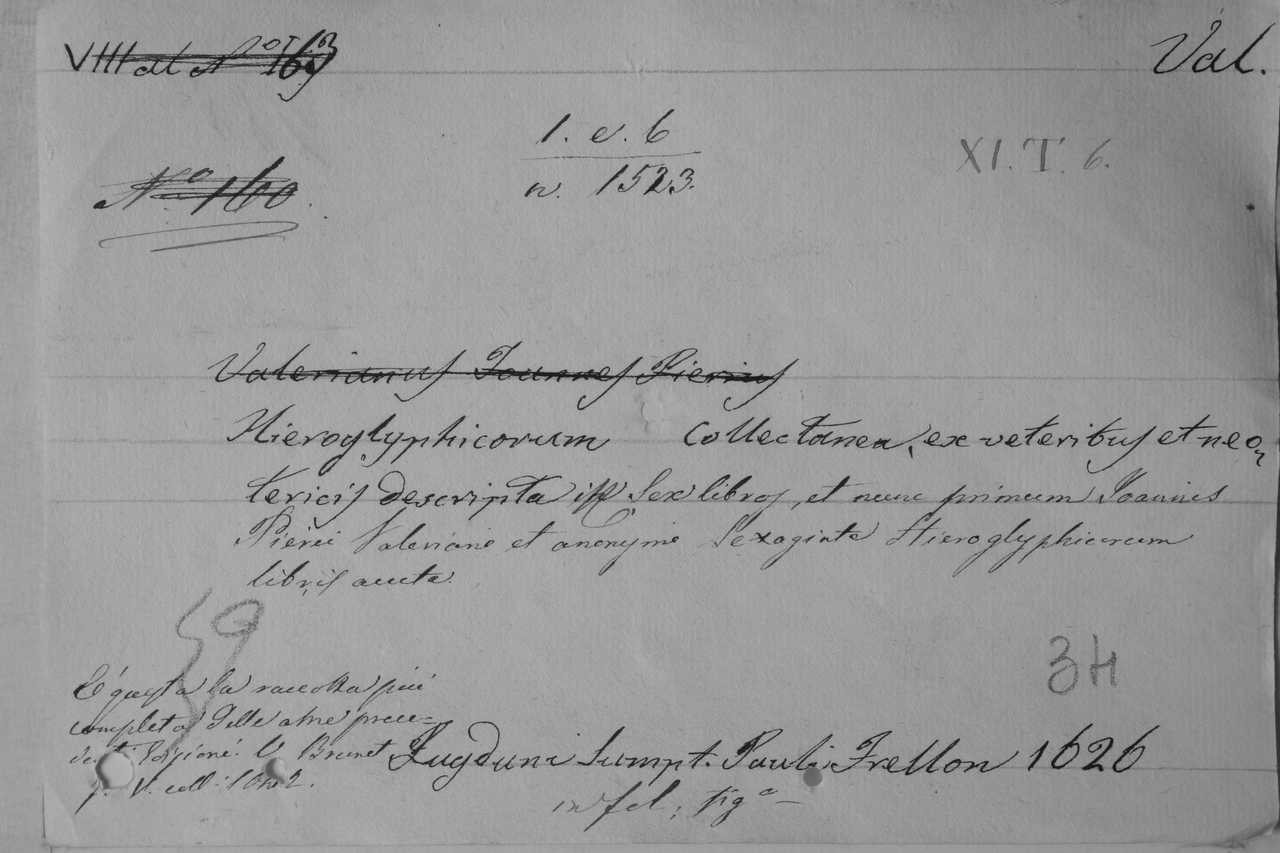 VIII al No 169
Val.
1. e. 6
n. 1523.
XI. T. 6.
No 160.
Valerianus Joannes Pierius
Hieroglyphicorum Collectanea, ex veteribus et neo
tericis descripta in Sex libros, et nunc primum Joannis
Pierii Valeriani et anonymi Sexaginta Hieroglyphicorum
libris aucta.
59
34
È questa la raccolta più
completa delle altre prece=
V. Brunet
Lugduni Sumpt. Pauli Frellon 1626
in fol; fig a